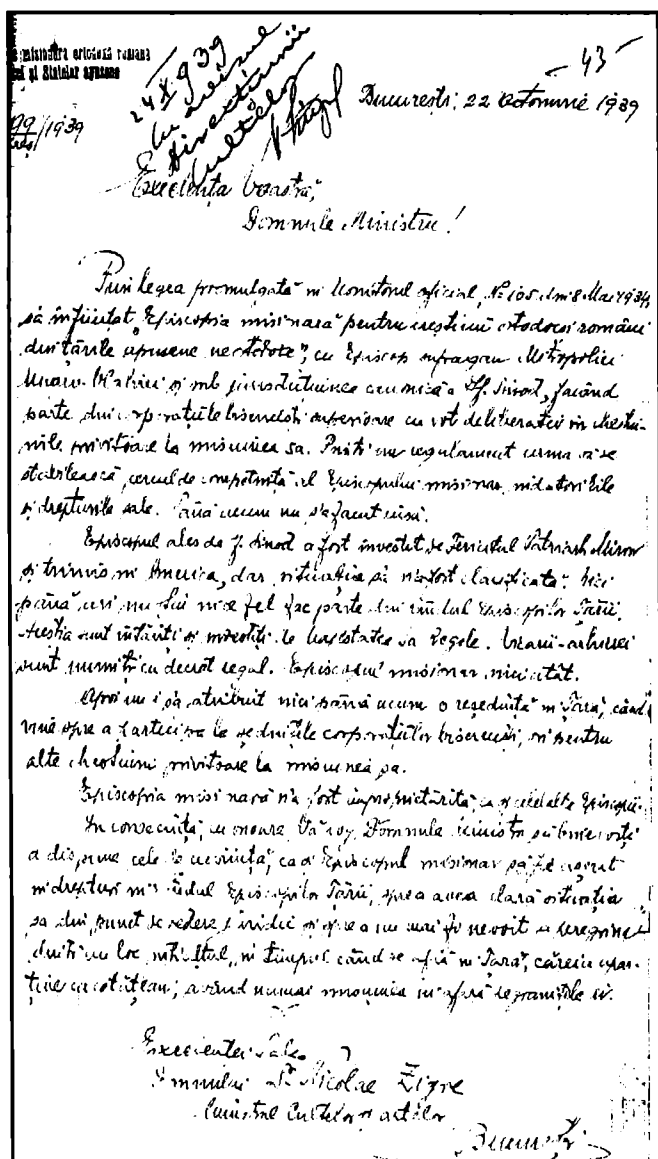 misionara ortodoxă romană
și Statelor apusene
/1939
24 X 939
Cu avizul
Direcțiunii
Cultelor
- 43 -
București, 22 Octomvrie 1939
Excelența Voastră,
Domnule Ministru!
Prin legea promulgată in Monitorul oficial, No 105 din 8 Mai 1934,
să înființat "Episcopia misionară pentru creștinii ortodocsi români
din țările apusene neortodoxe", cu Episcop sufragan Mitropoliei
și sub jurisdicțiunea canonică a Sf. Sinod, făcând
parte din corporațiile bisericești superioare cu vot deliberativ in chestiu-
nile privitoare la misiunea sa. Printr'un regulament urma să se
stabilească, cercul de competință al Episcopului misionar, indatoririle
și drepturile sale. Până acum nu s'a facut insă.
Episcopul ales de Sf. Sinod a fost investit de Fericitul Patriarh Miron
și trimis in America, dar situația sa n'a fost clarificată. Nici
până azi nu in nici un fel face parte din rândul Episcopilor Țării.
Aceștia sunt intăriți și investiți de Majestatea Sa Regele. Vicarii-arhierei
sunt numiți cu decret regal. Episcopul misionar nici atât.
Apoi nu i să atribuit nici până acum o reședință in Țară, când
vine spre a participa la ședințele corporațiilor bisericești, ori pentru
alte chestiuni privitoare la misiunea sa.
Episcopia misionară n'a fost improprietărită, ca și celelalte Episcopii.
In consecință, cu onoare Vă rog, Domnule Ministru să binevoiți
a dispune cele de cuviință, ca și Episcopul misionar să fie
in drepturi in rândul Episcopilor Țării, spre a avea clară situația
sa din punct de vedere juridic și spre a nu mai fi nevoit a peregrina
dintr'un loc intr'altul, in timpul când se află in Țară, căreia apar-
ține ca cetățean, având numai misiunea in afară de granițele ei.
Excelenței Sale
Domnului Dr Nicolae Zigre
Ministrul Cultelor și artelor
București